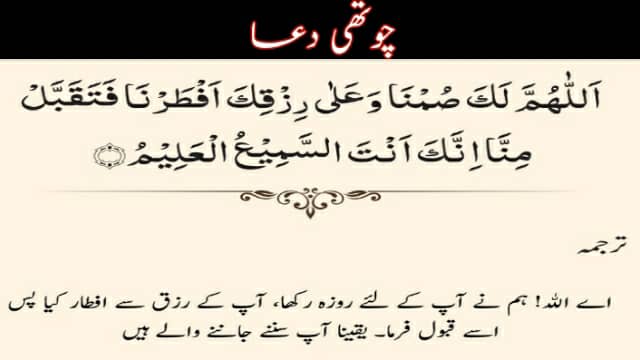 چوتھی دعا
اَللّٰهُمَّ لَكَ صُمْنَا وَعَلٰى رِزْقِكَ اَفْطَرْنَا فَتَقَبَّلْ
مِنَّا اِنَّكَ اَنْتَ السَّمِيْعُ الْعَلِيْمُ
ترجمہ
اے اللہ! ہم نے آپ کے لئے روزہ رکھا، آپ کے رزق سے افطار کیا پس
اسے قبول فرما۔ یقینا آپ سننے جاننے والے ہیں